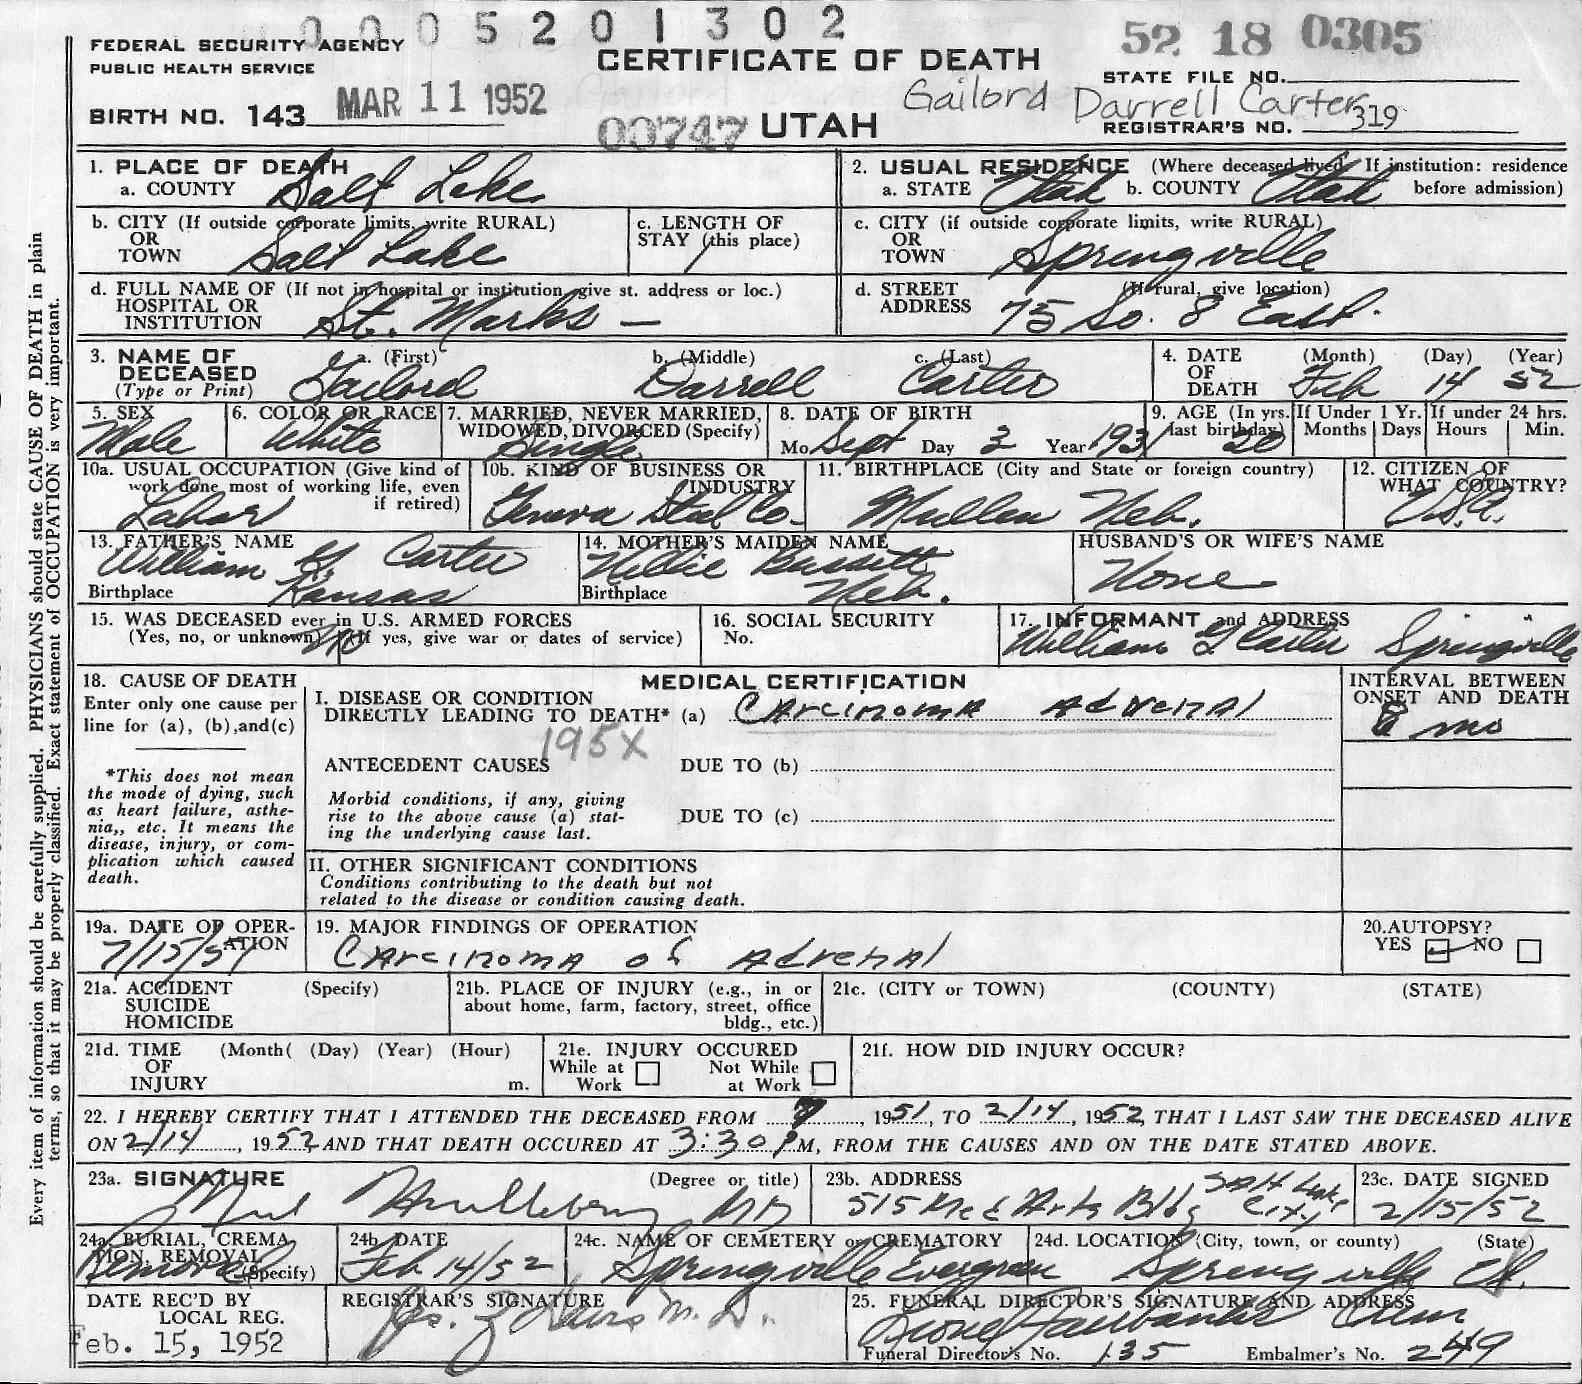 0005201302
52 18 0305
FEDERAL SECURITY AGENCY
PUBLIC HEALTH SERVICE
CERTIFICATE OF DEATH
STATE FILE NO.
MAR 11 1952
Gailord Darrell Carter
BIRTH NO. 143
00747 UTAH
REGISTRAR'S NO. 319
1. PLACE OF DEATH
a. COUNTY Salt Lake
2. USUAL RESIDENCE (Where deceased lived. If institution: residence
a. STATE Utah b. COUNTY Utah before admission)
b. CITY (If outside corporate limits, write RURAL)
OR
TOWN Salt Lake
c. LENGTH OF
STAY (this place)
1
c. CITY (if outside corporate limits, write RURAL)
OR
TOWN Springville
d. FULL NAME OF (If not in hospital or institution, give st. address or loc.)
HOSPITAL OR
INSTITUTION St. Marks —
d. STREET (If rural, give location)
ADDRESS 75 So. 8 East.
3. NAME OF
DECEASED
(Type or Print)
a. (First) b. (Middle) c. (Last)
Gailord Darrell Carter
4. DATE
OF
DEATH
(Month) (Day) (Year)
Feb 14 52
5. SEX
Male
6. COLOR OR RACE
White
7. MARRIED, NEVER MARRIED,
WIDOWED, DIVORCED (Specify)
Single
8. DATE OF BIRTH
Mo. Sept Day 3 Year 1931
9. AGE (In yrs.
last birthday) 20
If Under 1 Yr.
Months Days
If under 24 hrs.
Hours Min.
10a. USUAL OCCUPATION (Give kind of
work done most of working life, even
if retired)
Labor
10b. KIND OF BUSINESS OR
INDUSTRY
Geneva Steel Co.
11. BIRTHPLACE (City and State or foreign country)
Mullen Neb.
12. CITIZEN OF
WHAT COUNTRY?
U.S.A.
13. FATHER'S NAME
William G. Carter
Birthplace Kansas
14. MOTHER'S MAIDEN NAME
Nellie Bassett
Birthplace Neb.
HUSBAND'S OR WIFE'S NAME
None
15. WAS DECEASED ever in U.S. ARMED FORCES
(Yes, no, or unknown) (If yes, give war or dates of service)
No
16. SOCIAL SECURITY
No.
17. INFORMANT and ADDRESS
William G Carter Springville
18. CAUSE OF DEATH
Enter only one cause per
line for (a), (b),and(c)
*This does not mean
the mode of dying, such
as heart failure, asthe-
nia,, etc. It means the
disease, injury, or com-
plication which caused
death.
MEDICAL CERTIFICATION
I. DISEASE OR CONDITION
DIRECTLY LEADING TO DEATH* (a) Carcinoma Adrenal
195X
ANTECEDENT CAUSES DUE TO (b)
Morbid conditions, if any, giving
rise to the above cause (a) stat-
ing the underlying cause last.
DUE TO (c)
II. OTHER SIGNIFICANT CONDITIONS
Conditions contributing to the death but not
related to the disease or condition causing death.
INTERVAL BETWEEN
ONSET AND DEATH
8 mo
19a. DATE OF OPER-
ATION
7/15/51
19. MAJOR FINDINGS OF OPERATION
Carcinoma of Adrenal
20.AUTOPSY?
YES NO
21a. ACCIDENT (Specify)
SUICIDE
HOMICIDE
21b. PLACE OF INJURY (e.g., in or
about home, farm, factory, street, office
bldg., etc.)
21c. (CITY or TOWN) (COUNTY) (STATE)
21d. TIME (Month( (Day) (Year) (Hour)
OF
INJURY m.
21e. INJURY OCCURED
While at Not While
Work at Work
21f. HOW DID INJURY OCCUR?
22. I HEREBY CERTIFY THAT I ATTENDED THE DECEASED FROM 7, 1951, TO 2/14, 1952, THAT I LAST SAW THE DECEASED ALIVE
ON 2/14, 1952 AND THAT DEATH OCCURED AT 3:30 PM, FROM THE CAUSES AND ON THE DATE STATED ABOVE.
23a. SIGNATURE (Degree or title)
MD
23b. ADDRESS
515 Med Arts Bldg Salt Lake
City
23c. DATE SIGNED
2/15/52
24a. BURIAL, CREMA
TION, REMOVAL
(Specify)
Removal
24b. DATE
Feb 14/52
24c. NAME OF CEMETERY or CREMATORY
Springville Evergreen
24d. LOCATION (City, town, or county) (State)
Springville Ut.
DATE REC'D BY
LOCAL REG.
Feb. 15, 1952
REGISTRAR'S SIGNATURE
M.D.
25. FUNERAL DIRECTOR'S SIGNATURE AND ADDRESS
Funeral Director's No. 135 Embalmer's No. 249
Every item of information should be carefully supplied. PHYSICIANS should state CAUSE OF DEATH in plain
terms, so that it may be properly classified. Exact statement of OCCUPATION is very important.